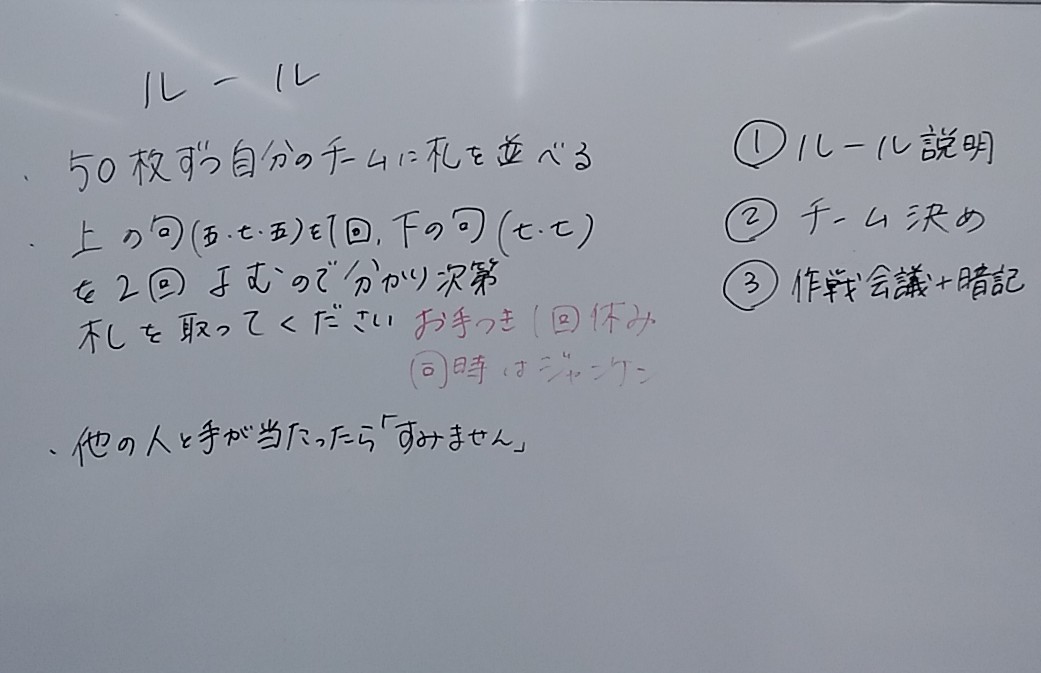 ルール
・50枚ずつ自分のチームに札を並べる
・上の句(五・七・五)を1回、下の句(七・七)
を2回よむので分かり次第
札を取ってください お手つき1回休み
同時はジャンケン
・他の人と手が当たったら「すみません」
① ルール説明
② チーム決め
③ 作戦会議+暗記